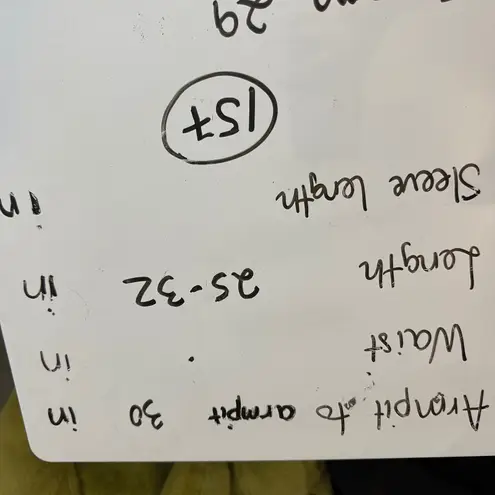 Armpit to armpit 30 in
Waist in
Length 25-32 in
Sleeve length in
29